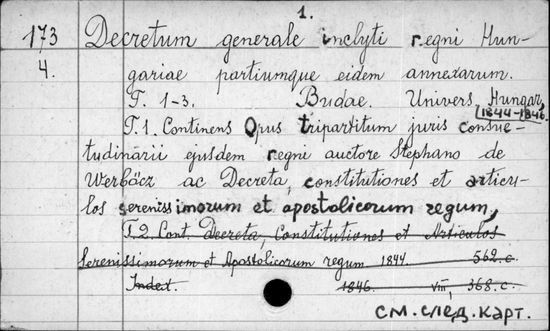 1.
173 Decretum generale inclyti regni Hun-
4. gariae partiumque eidem annexarum.
T. 1-3. Budae. Univers. Hungar,
1844-1846.
T. 1. Continens Opus tripartitum juris consue-
tudinarii ejusdem regni auctore Stephano de
Werböcz ac Decreta, constitutiones et articu-
los sereniss imorum et apostolicorum regum,
T. 2. Cont. Decreta, Constitutiones et Articulos
Serenissimorum et Apostolicorum regum 1844. 562. c.
Index. 1846. VIII, 368. c.
см. след. карт.